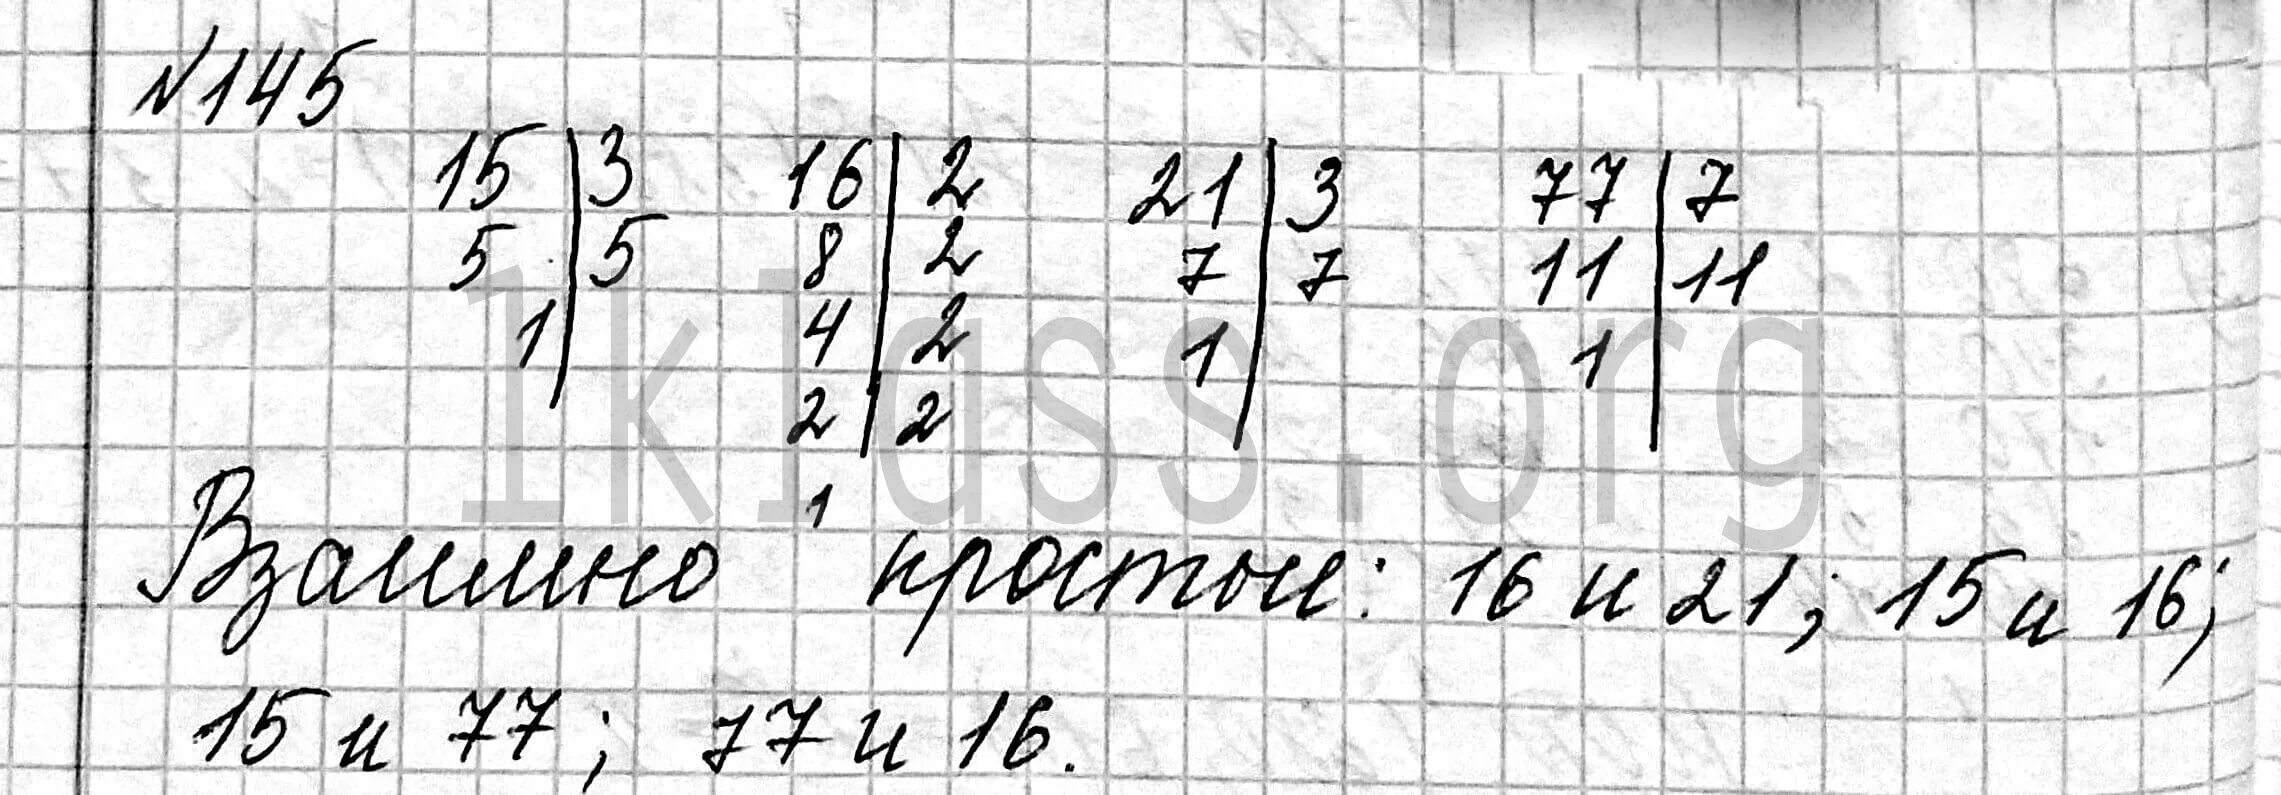 №145
15 | 3 16 | 2 21 | 3 77 | 7
5 | 5 8 | 2 7 | 7 11 | 11
1 | 4 | 2 1 | 1 |
2 | 2
1
Взаимно простые: 16 и 21; 15 и 16;
15 и 77; 77 и 16.
1klass.org